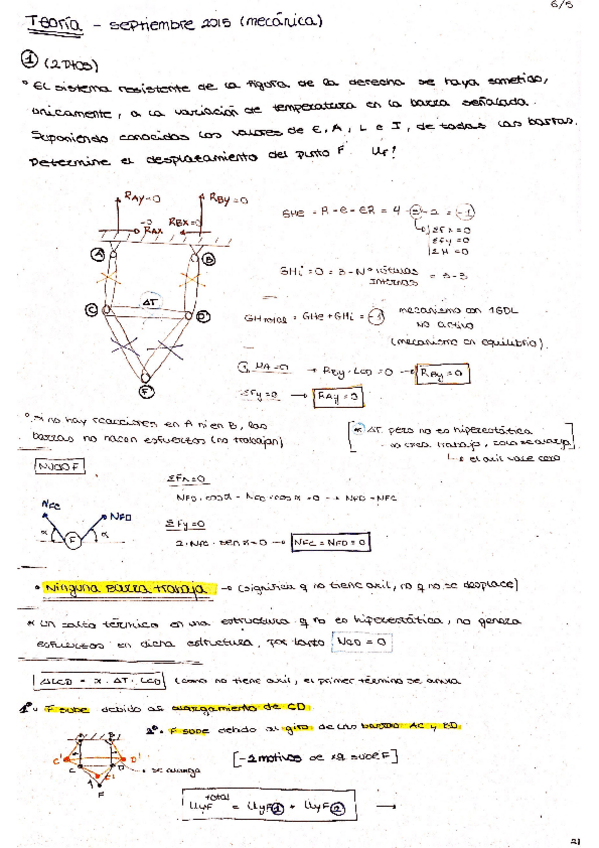 6/5
Teoría - septiembre 2015 (mecánica)
① (2 ptos)
° El sistema resistente de la figura de la derecha se haya sometido,
únicamente, a la variación de temperatura en la barra señalada.
Suponiendo conocidas los valores de E, A, L e I, de todas las barras.
Determine el desplazamiento del punto F. UF!
RAY=0
RBY=0
RAX
RBX=0
A
B
C
ΔT
D
F
GHe = R - e - eR = 4 - 3 - 2 = -1
ΣFx=0
ΣFy=0
ΣM=0
GHi = 0 = 3 - Nº rótulas internas = 3-3
GHtotal = GHe + GHi = -1
mecanismo con 1GDL
no activo
(mecanismo en equilibrio).
ΣMA=0 → RBy · LCD = 0 → RBY = 0
ΣFy=0 → RAY = 0
° Si no hay reacciones en A ni en B, las
barras no hacen esfuerzos (no trabajan)
ΔT pero no es hiperestática
→ el axil vale cero
NUDO F
ΣFx=0
NFD · cosα - NFC · cosα = 0 → NFD = NFC
NFC
NFD
α
F
α
ΣFy=0
2 · NFC · senα = 0 → NFC = NFD = 0
• Ninguna barra trabaja → (significa q no tiene axil, no q no se desplace)
* un salto térmico en una estructura q no es hiperestática, no genera
esfuerzos en dicha estructura, por tanto NCD = 0
ΔLCD = α · ΔT · LCD (como no tiene axil, el primer término se anula
1º. F sube debido al alargamiento de CD.
2º. F sube debido al giro de las barras AC y BD.
C'
D'
C
D
F
→ se alarga
[-2 motivos de xq sube F]
total
UyF = UyF① + UyF② →
21